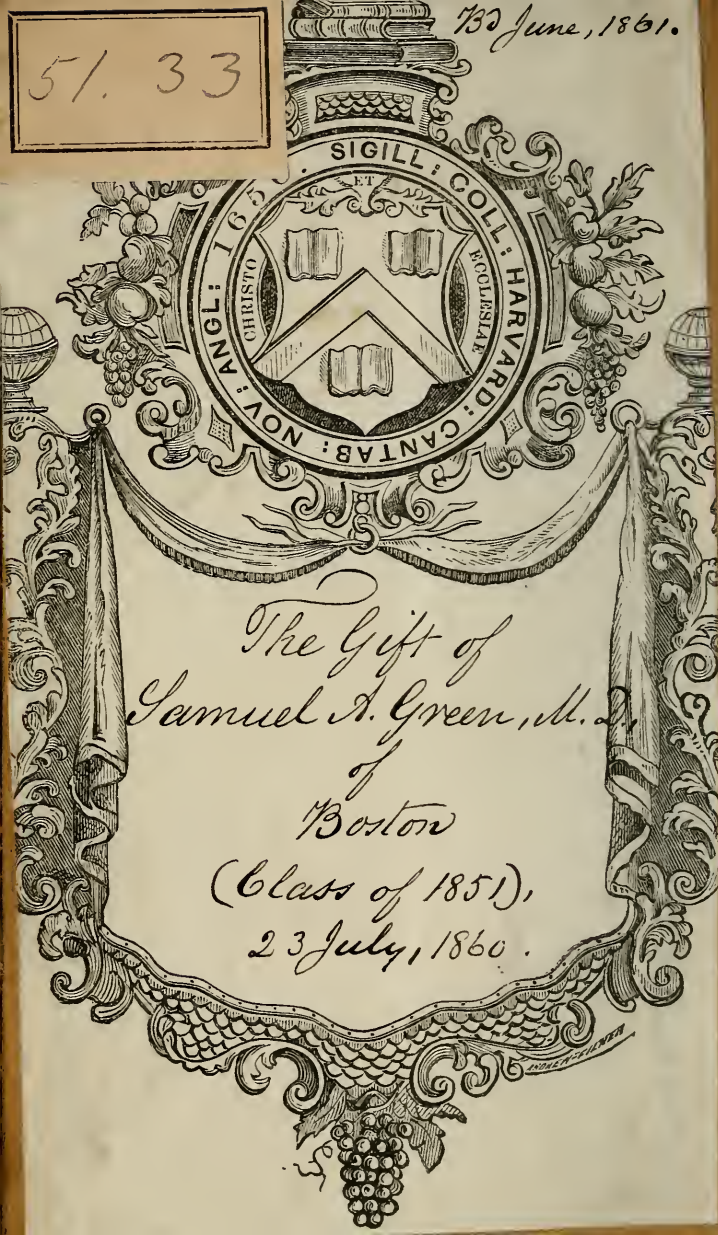 51. 33
Bd June, 1861.
SIGILL: COLL: HARVARD: CANTAB: NOV: ANGL: 165
ET
CHRISTO
ECCLESIAE
The Gift of
Samuel A. Green, M. D.
of
Boston
(Class of 1851),
23 July, 1860.